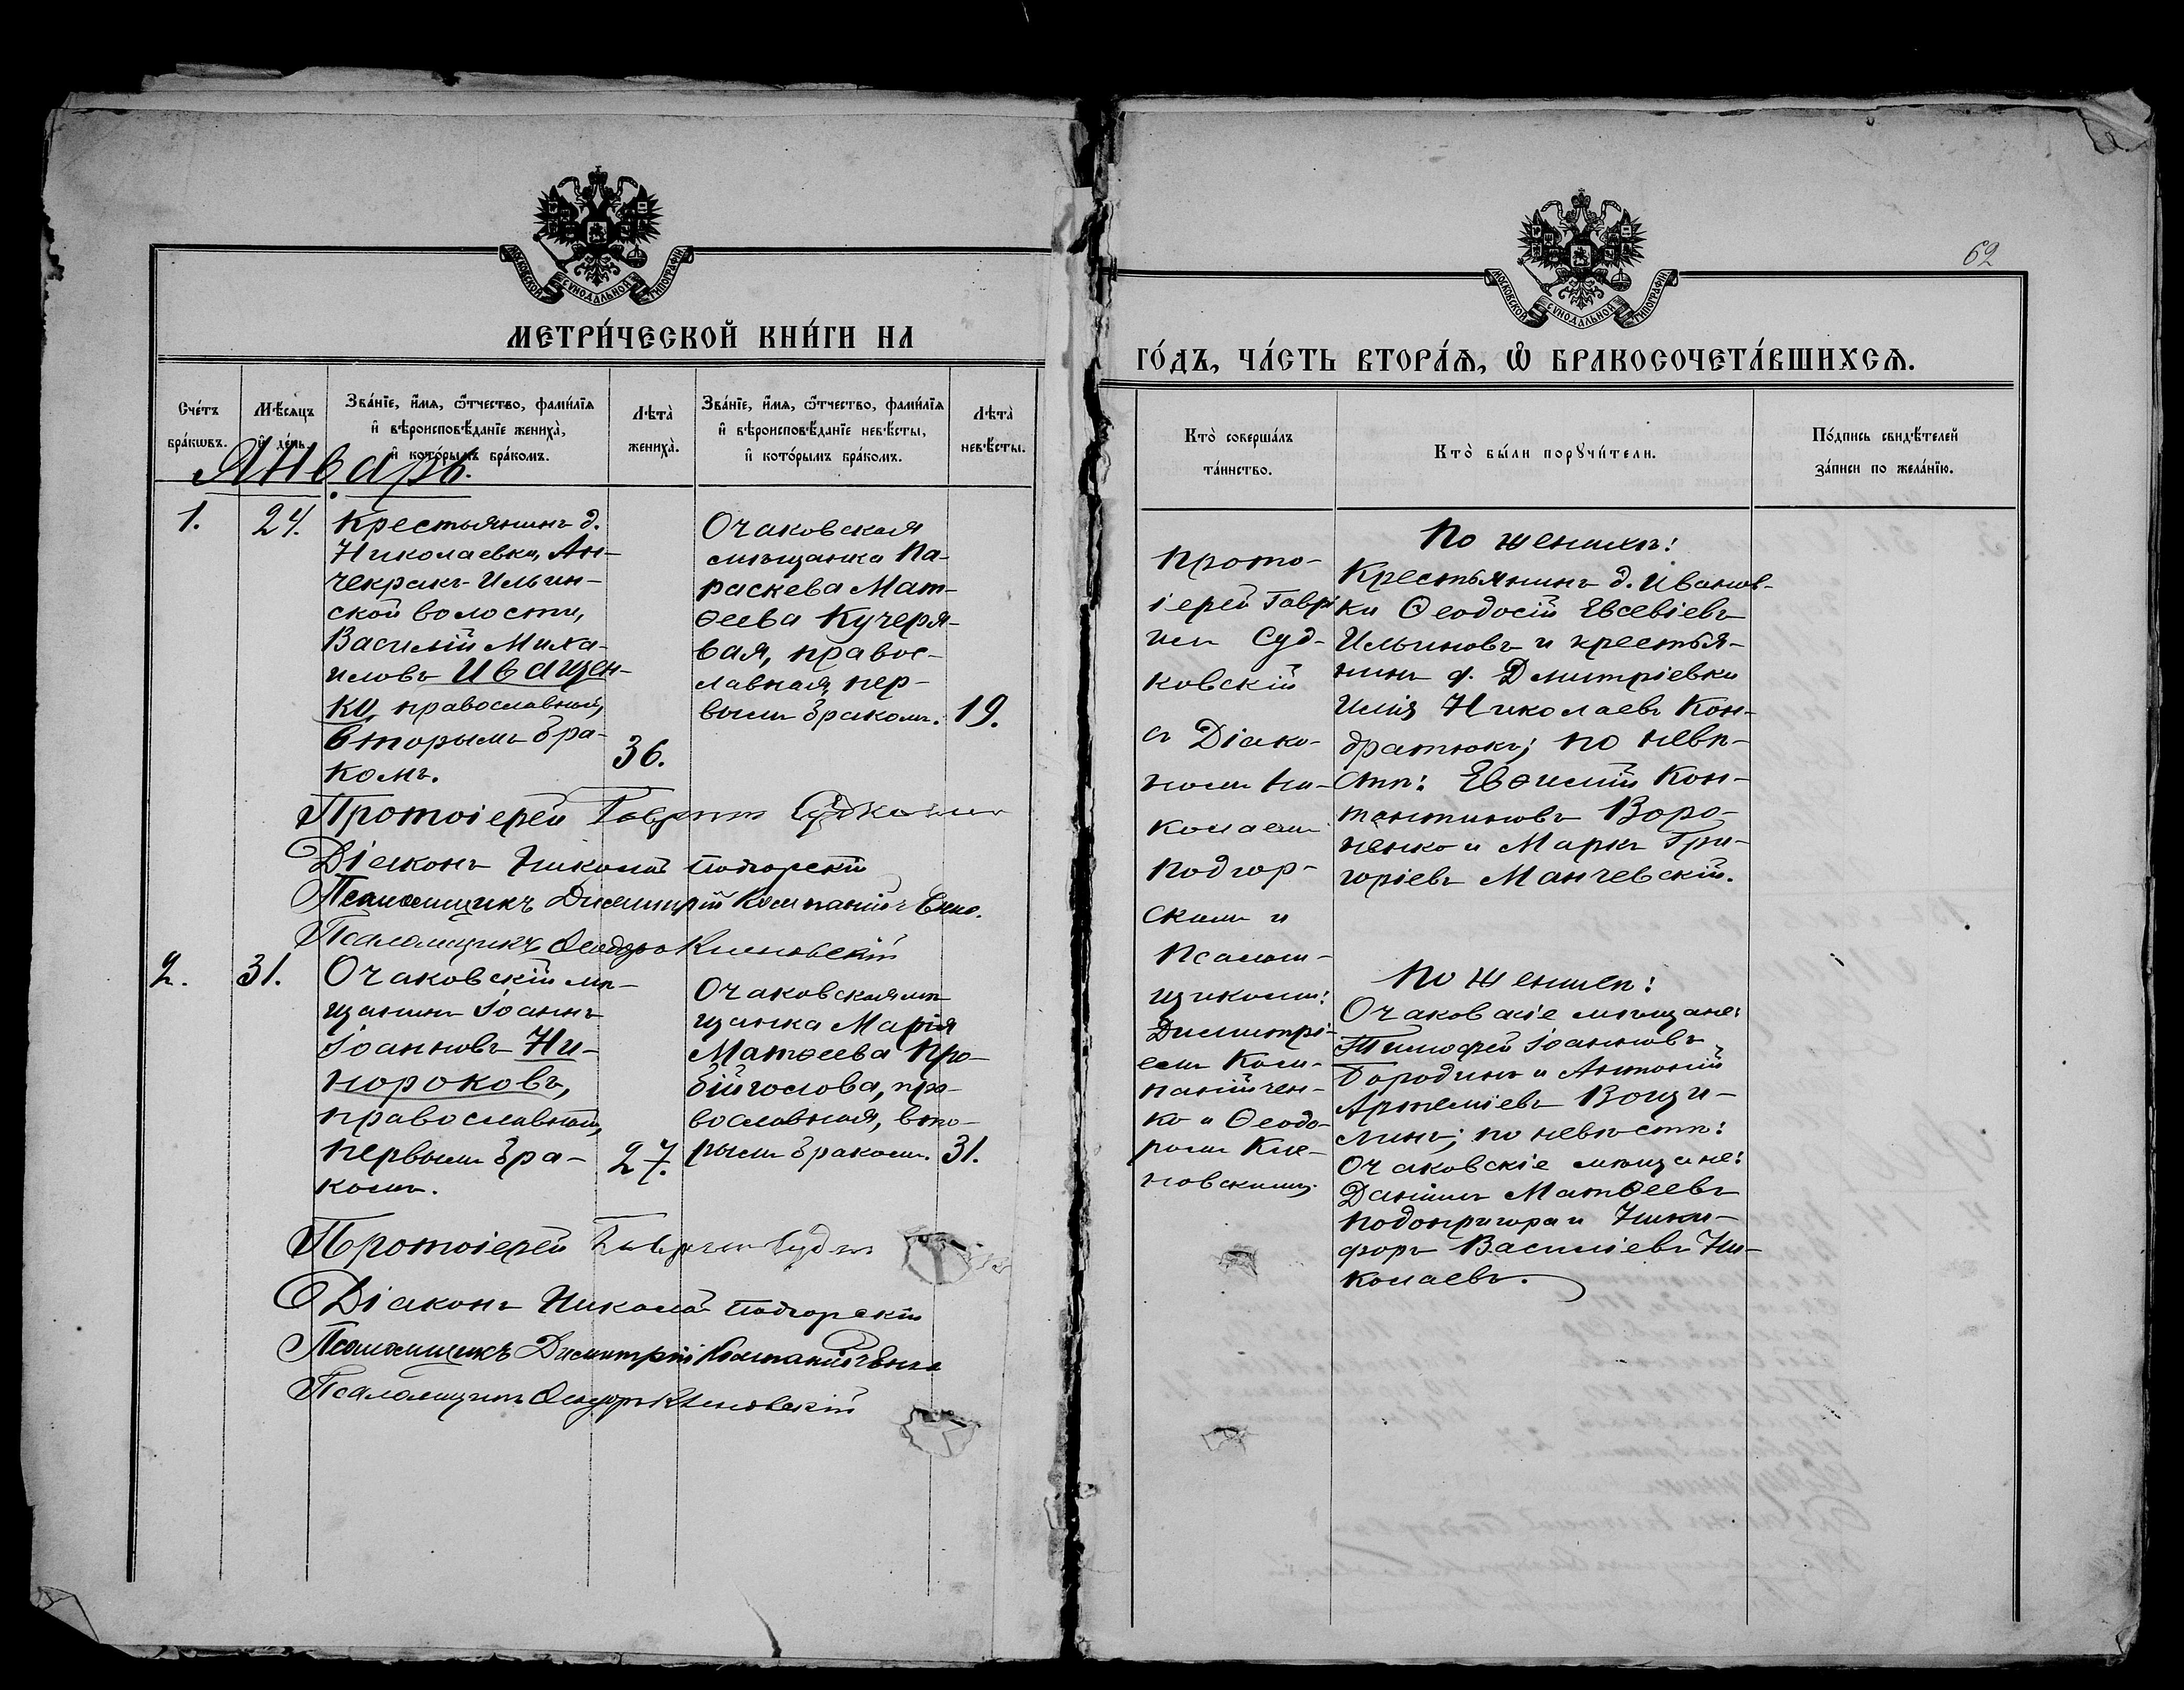 МОСКОВСКОЙ СѴНОДАЛЬНОЙ ТИПОГРАФІИ
МЕТРИ́ЧЕСКОЙ КНИ́ГИ НА
Сче́тъ бра́кѡвъ.
Мѣ́сяцъ и҆ де́нь.
Зва́нїе, и҆́мѧ, ѻ҆́тчество, фами́лїѧ
и҆ вѣроисповѣ́данїе жениха̀,
и҆ кото́рымъ бра́комъ.
Лѣта̀
жениха̀.
Зва́нїе, и҆́мѧ, ѻ҆́тчество, фами́лїѧ
и҆ вѣроисповѣ́данїе невѣ́сты,
и҆ кото́рымъ бра́комъ.
Лѣта̀
невѣ́сты.
Январь.
1.
24.
Крестьянинъ д.
Николаевки, Ан-
чекракъ-Ильин-
ской волости,
Василій Миха-
иловъ Иващен-
ко, православный,
вторымъ бра-
комъ.
36.
Очаковская
мѣщанка Па-
раскева Мат-
ѳеева Кучеря-
вая, правос-
лавная, пер-
вымъ бракомъ.
19.
Протоіерей Гавріилъ Судковскій
Діаконъ Николай Подгорскій
Псаломщикъ Димитрій Компанійченко.
Псаломщикъ Ѳеодоръ Кленовскій
2.
31.
Очаковскій мѣ-
щанинъ Іоаннъ
Іоанновъ Ни-
пороковъ,
православный,
первымъ бра-
комъ.
27.
Очаковская мѣ-
щанка Марія
Матѳеева Про-
бійголова, пра-
вославная, вто-
рымъ бракомъ.
31.
Протоіерей Гавріилъ
Діаконъ Николай Подгорскій
Псаломщикъ Димитрій Компанійченко
Псаломщикъ Ѳеодоръ Кленовскій
62
МОСКОВСКОЙ СѴНОДАЛЬНОЙ ТИПОГРАФІИ
ГО́ДЪ, ЧА́СТЬ ВТОРА́Ѧ, Ѡ҆ БРАКОСОЧЕТА́ВШИХСѦ.
Кто̀ соверша́лъ
та́инство.
Кто̀ бы́ли порꙋчи́тели.
По́дпись свидѣ́телей
за́писи по жела́нїю.
Прото-
іерей Гаврі-
илъ Суд-
ковскій
съ Діако-
номъ Ни-
колаемъ
Подгор-
скимъ и
Псалом-
щиками:
Димитрі-
емъ Ком-
панійчен-
ко и Ѳеодо-
ромъ Кле-
новскимъ.
По женихѣ:
Крестьянинъ д. Иванов-
ки Ѳеодосій Евсевіевъ
Ильиновъ и крестья-
нинъ д. Дмитріевки
Илія Николаевъ Кон-
дратюкъ; по невѣ-
стѣ: Евѳимій Кон-
тантиновъ Воро-
ненко и Маркъ Гри-
горіевъ Манчевскій.
По женихѣ:
Очаковскіе мѣщане:
Тимофей Іоанновъ
Бородинъ и Антоній
Артеміевъ Вощи-
линъ; по невѣстѣ:
Очаковскіе мѣщане:
Даніилъ Матѳеевъ
Подопригора и Ники-
форъ Василіевъ Ни-
колаевъ.